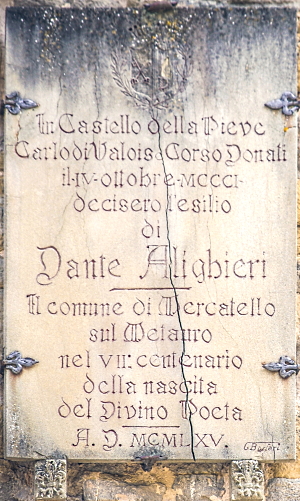 In Castello della Pieve
Carlo di Valois e Corso Donati
il·IV·ottobre·MCCCI·
decisero l'esilio
di
Dante Alighieri
Il comune di Mercatello
sul Metauro
nel VII· centenario
della nascita
del Divino Poeta
A. D. MCMLXV.